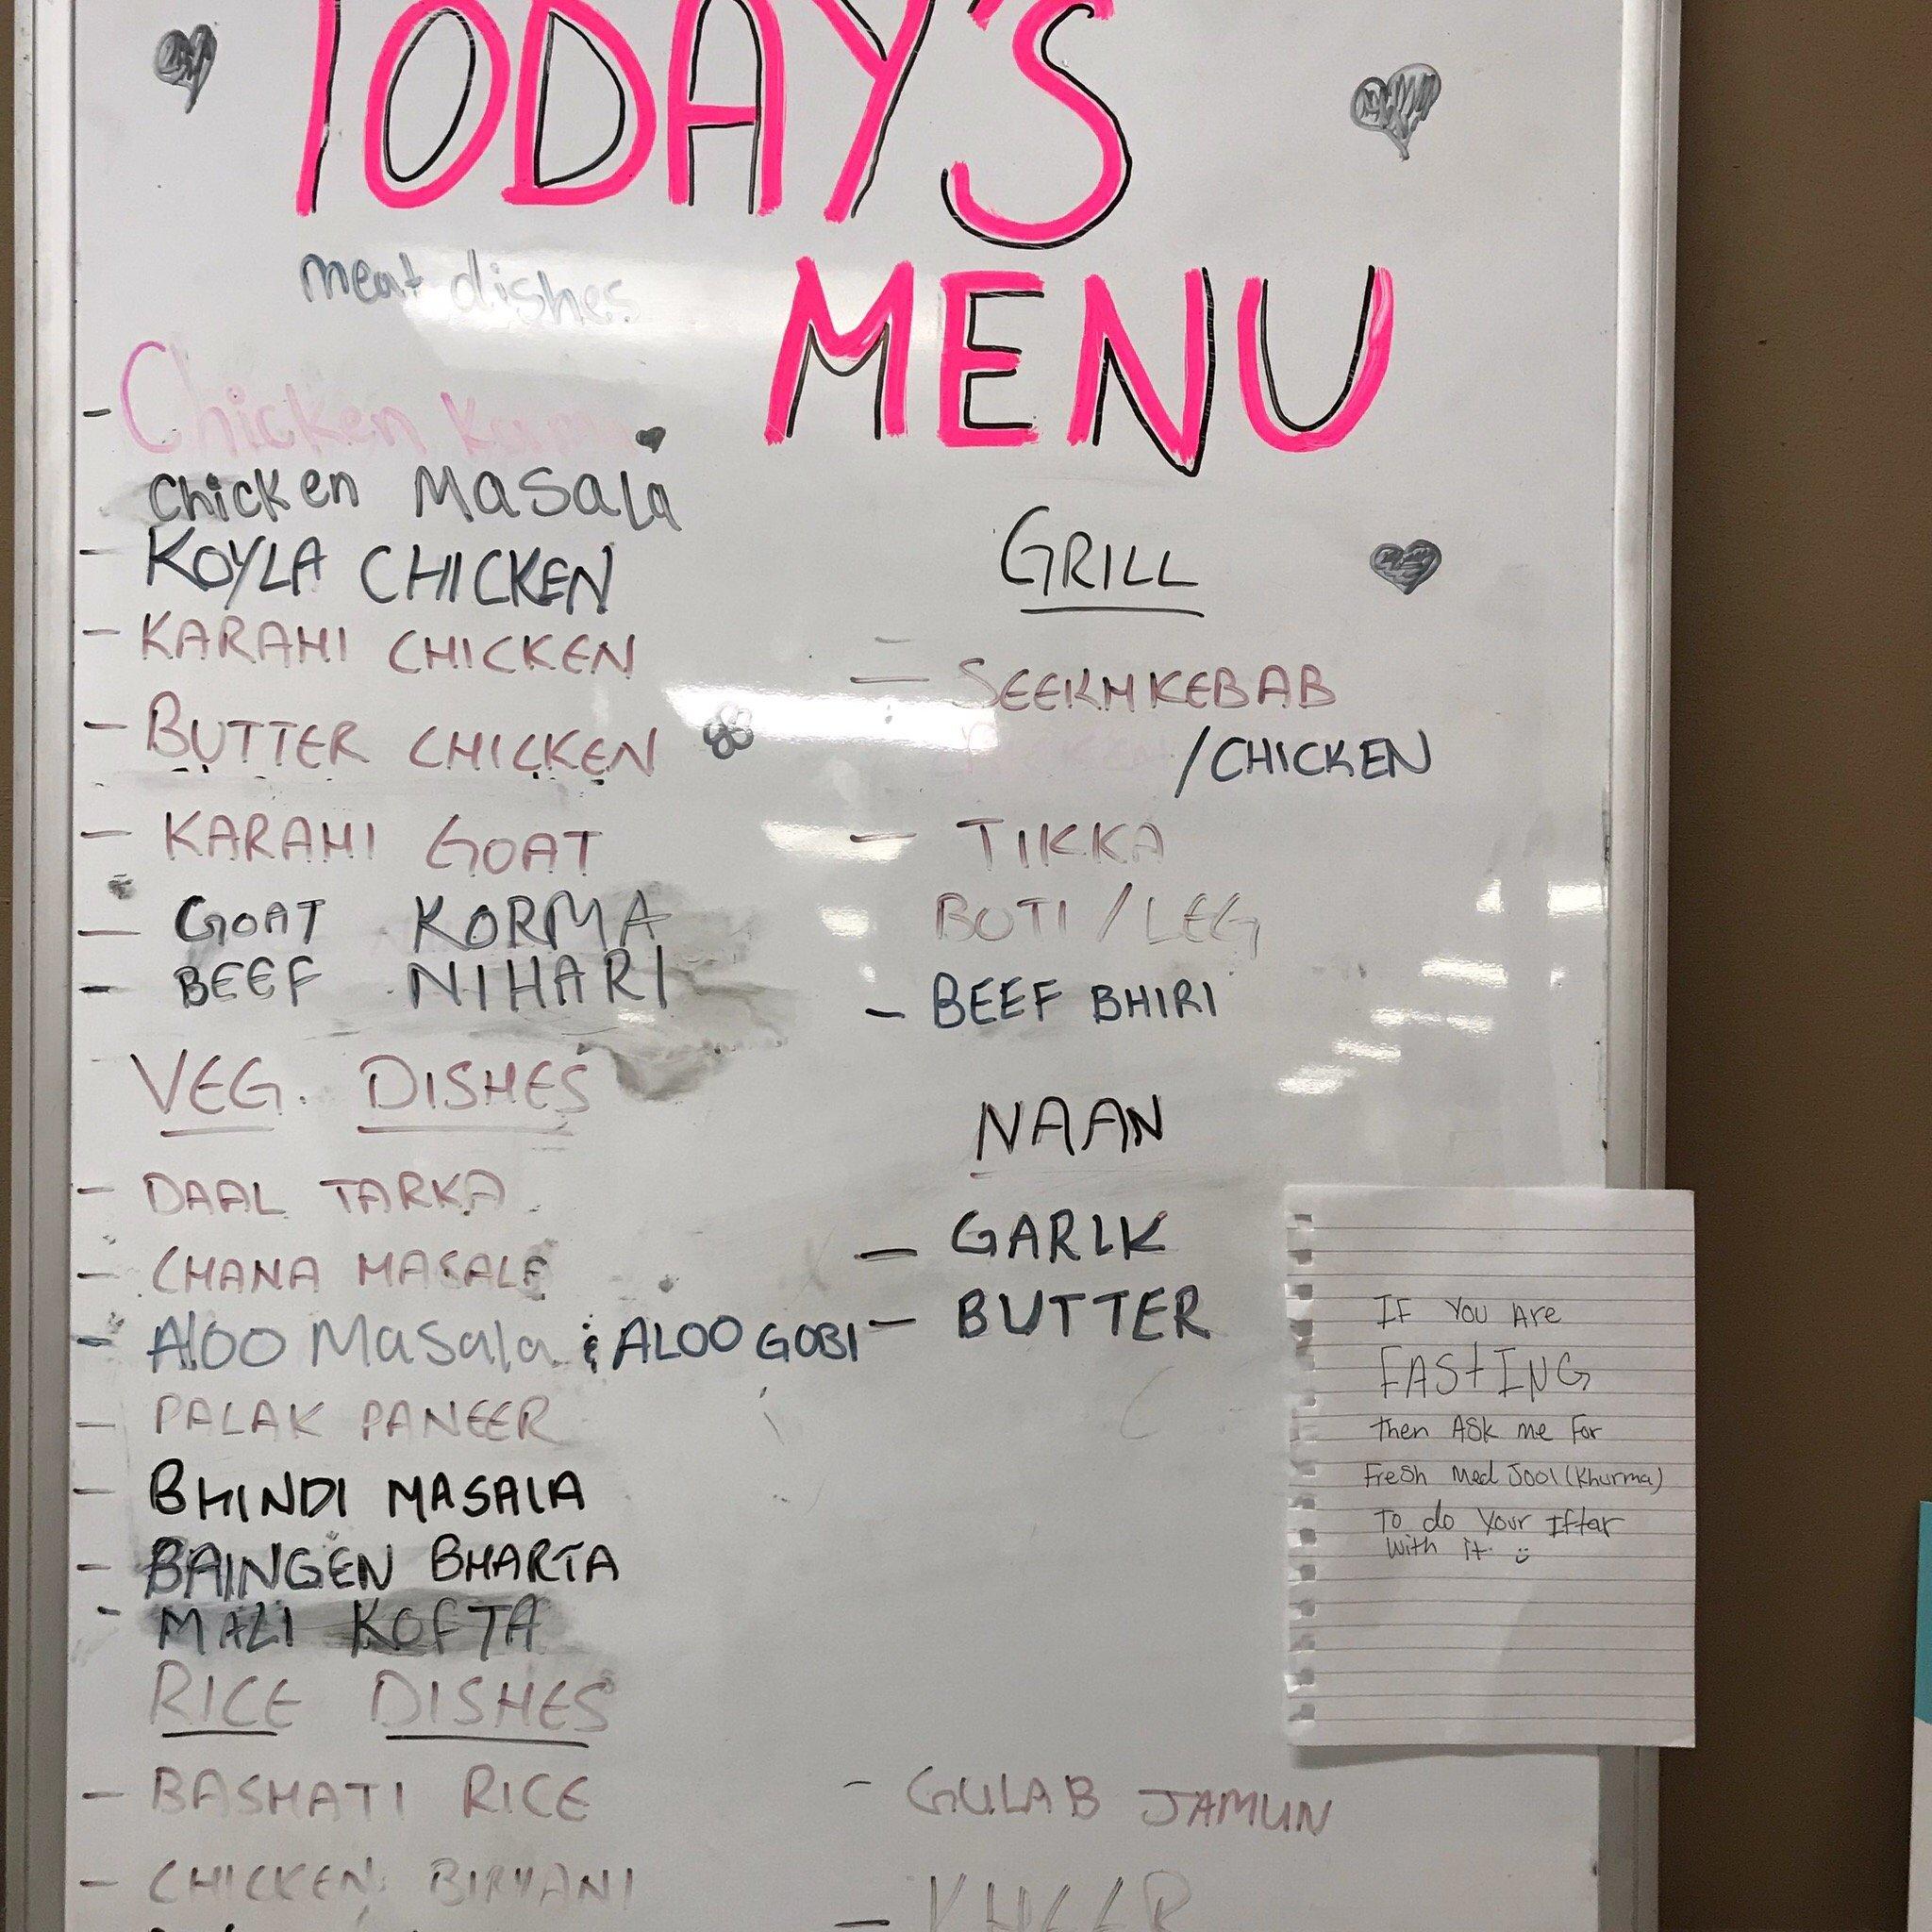 TODAY'S
MENU
meat dishes
- Chicken
Chicken Masala
- KOYLA CHICKEN
- KARAHI CHICKEN
- BUTTER CHICKEN
- KARAHI GOAT
- GOAT KORMA
- BEEF NIHARI
VEG. DISHES
- DAAL TARKA
- CHANA MASALE
- Aloo Masala & ALOO GOBI
- PALAK PANEER
- BHINDI MASALA
- BAINGEN BHARTA
- MALI KOFTA
RICE DISHES
- BASMATI RICE
- CHICKEN BIRYANI
GRILL
- SEEKH KEBAB
/CHICKEN
- TIKKA
BOTI / LEG
- BEEF BHIRI
NAAN
- GARLK
- BUTTER
- GULAB JAMUN
- KHEER
IF You Are
FAStING
then Ask me For
Fresh Med Jool (Khurma)
To do Your Iftar
With it. ☺